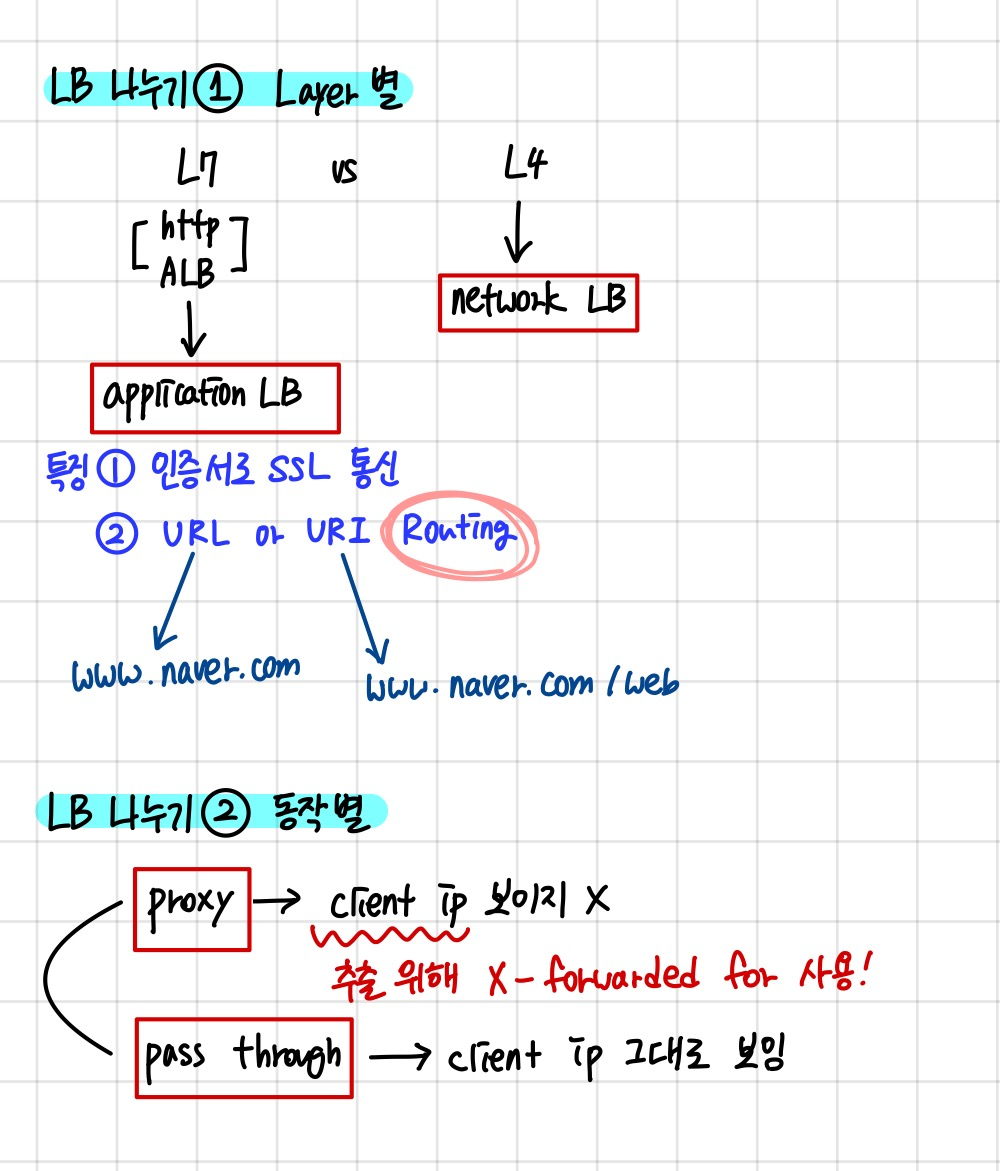 LB 나누기 ① Layer 별
L7 vs L4
http
ALB
network LB
application LB
특징 ① 인증서로 SSL 통신
② URL or URI Routing
www.naver.com
www.naver.com/web
LB 나누기 ② 동작별
proxy → client ip 보이지 X
추출 위해 X-forwarded for 사용!
pass through → client ip 그대로 보임